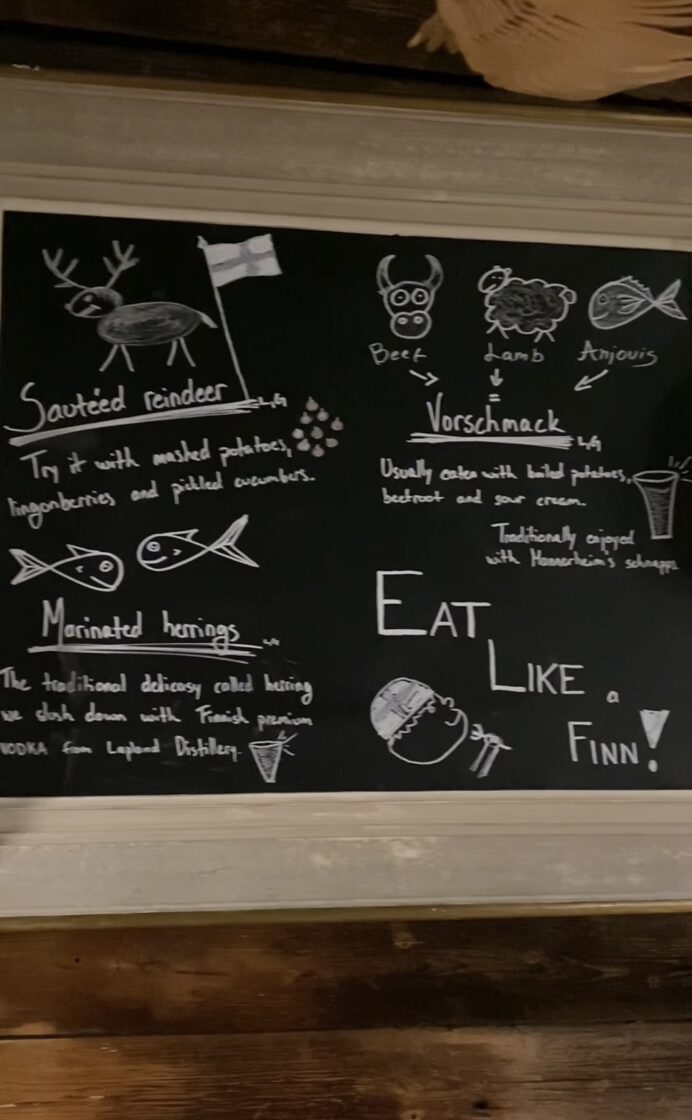 Sautéed reindeer L,G
Try it with mashed potatoes,
lingonberries and pickled cucumbers.
Marinated herrings
The traditional delicasy called herring
we dush down with Finnish premium
VODKA from Lapland Distillery.
Beef Lamb Anjovis
=
Vorschmack L,G
Usually eaten with boiled potatoes,
beetroot and sour cream.
Traditionally enjoyed
with Mannerheim's schnapps.
EAT
LIKE a
FINN!